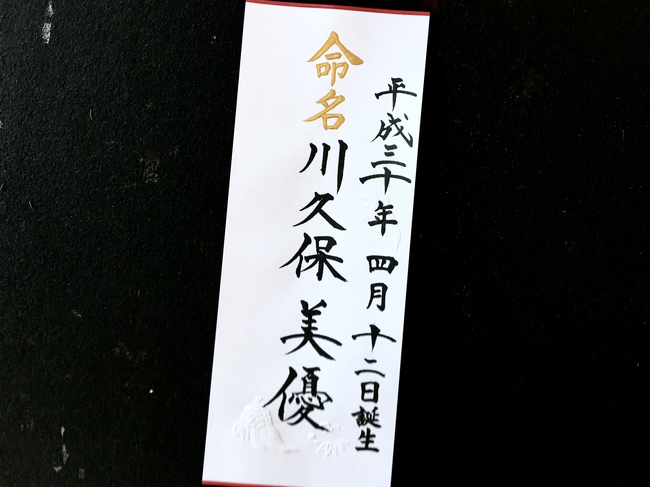 平成三十年 四月十二日誕生
命名 川久保 美優